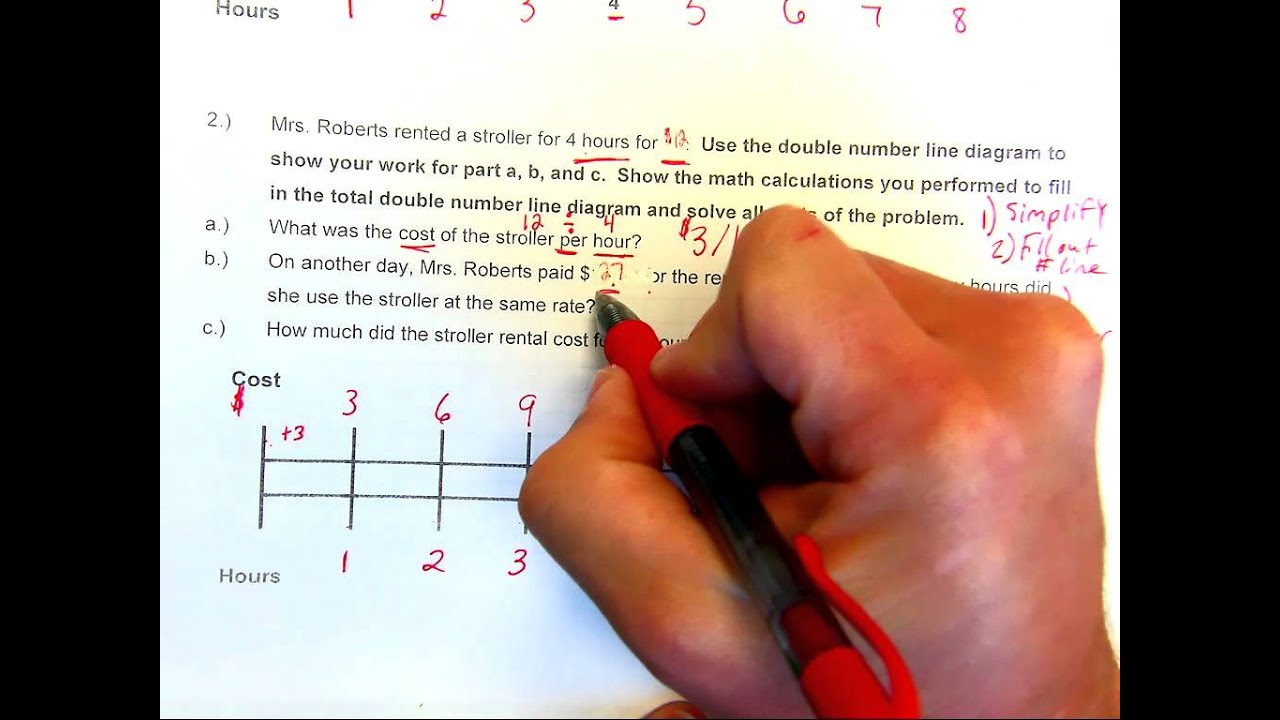 Hours 1 2 3 4 5 6 7 8
2.) Mrs. Roberts rented a stroller for 4 hours for $12. Use the double number line diagram to
show your work for part a, b, and c. Show the math calculations you performed to fill
in the total double number line diagram and solve all of the problem. 1) Simplify
12 ÷ 4
a.) What was the cost of the stroller per hour? $3/ 2) Fill out
# line
b.) On another day, Mrs. Roberts paid $ 27 for the hours did
she use the stroller at the same rate?
c.) How much did the stroller rental cost
Cost
$ 3 6 9
+3
1 2 3
Hours